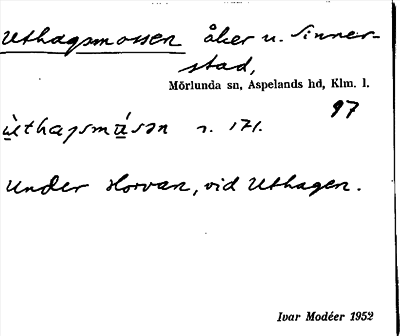 Uthagsmossen åker u. Sinner-
stad,
Mörlunda sn, Aspelands hd, Klm. l.
97
ùthagsmásən s. 171.
Under Horvan, vid Uthagen.
Ivar Modéer 1952